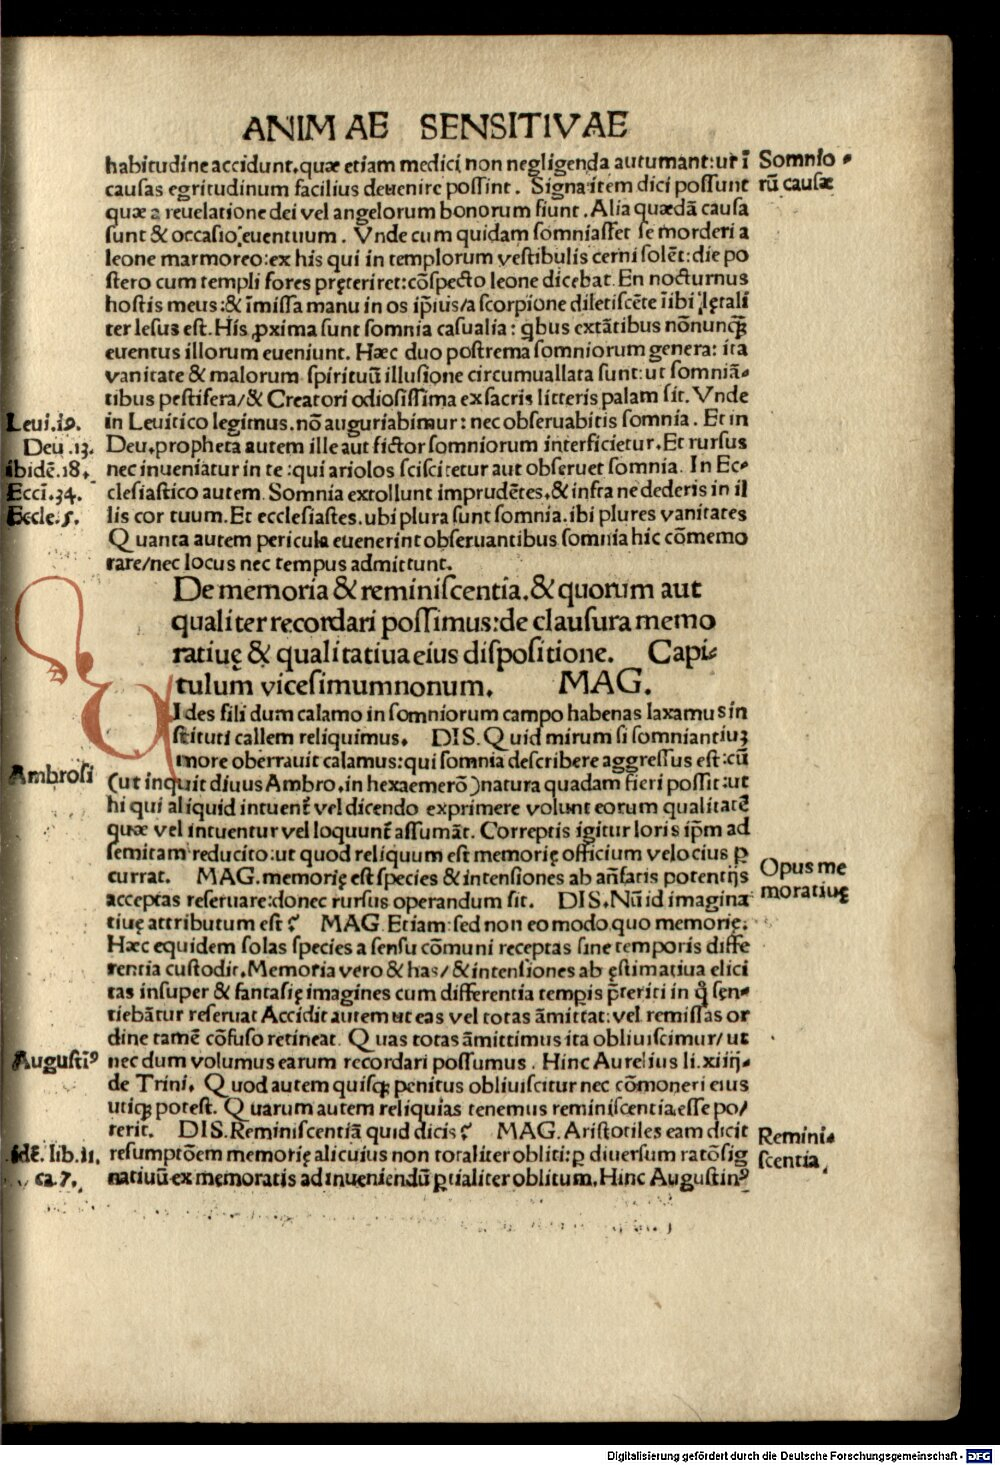 ANIMAE SENSITIVAE
habitudine accidunt.quæ etiam medici non negligenda autumant:ut ī
causas egritudinum facilius deuenire possint. Signa item dici possunt
quæ a reuelatione dei vel angelorum bonorum fiunt. Alia quædā causa
sunt & occasio euentuum. Vnde cum quidam somniasset se morderi a
leone marmoreo:ex his qui in templorum vestibulis cerni solēt:die po
stero cum templi fores pręteriret:cōspecto leone dicebat. En nocturnus
hostis meus:& īmissa manu in os ip̄ius/a scorpione dilitiscēte ībi lętali
ter lesus est. His ꝓxima sunt somnia casualia: qbus extātibus nōnunqꝫ
euentus illorum eueniunt. Hæc duo postrema somniorum genera: ita
vanitate & malorum spirituū illusione circumuallata sunt:ut somniā-
tibus pestifera/& Creatori odiosissima ex sacris litteris palam sit. Vnde
in Leuitico legimus.nō auguriabimur: nec obseruabitis somnia. Et in
Deu.propheta autem ille aut fictor somniorum interficietur. Et rursus
nec inueniatur in te:qui ariolos sciscitetur aut obseruet somnia. In Ec-
clesiastico autem. Somnia extollunt imprudētes.& infra ne dederis in il
lis cor tuum. Et ecclesiastes.ubi plura sunt somnia.ibi plures vanitates
Quanta autem pericula euenerint obseruantibus somnia hic cōmemo
rare/nec locus nec tempus admittunt.
Somnio-
rū causæ
Leui.19.
Deu.13.
ibidē.18.
Ecci.34.
Eccle.5.
De memoria & reminiscentia.& quorum aut
qualiter recordari possimus:de clausura memo
ratiuę & qualitatiua eius dispositione. Capi-
tulum vicesimumnonum. MAG.
VIdes fili dum calamo in somniorum campo habenas laxamus in
stituti callem reliquimus. DIS. Quid mirum si somniantiuꝫ
more oberrauit calamus:qui somnia describere aggressus est:cū
(ut inquit diuus Ambro.in hexaemerō)natura quadam fieri possit:ut
hi qui aliquid intuent̄ vel dicendo exprimere volunt eorum qualitatē
quæ vel intuentur vel loquunt̄ assumāt. Correptis igitur loris ip̄m ad
semitam reducito:ut quod reliquum est memorię officium velocius ꝑ
currat. MAG.memorię est species & intensiones ab an̄fatis potentijs
acceptas reseruare:donec rursus operandum sit. DIS.Nū id imagina
tiuę attributum est? MAG Etiam:sed non eo modo quo memorię.
Hæc equidem solas species a sensu cōmuni receptas sine temporis diffe
rentia custodit.Memoria vero & has/& intensiones ab ęstimatiua elici
tas insuper & fantasię imagines cum differentia tempis p̄teriti in q̊ sen-
tiebātur reseruat Accidit autem ut eas vel totas āmittat:vel remissas or
dine tamē cōfuso retineat. Quas totas āmittimus ita obliuiscimur/ut
nec dum volumus earum recordari possumus. Hinc Aurelius li.xiiij
de Trini. Quod autem quisqꝫ penitus obliuiscitur nec cōmoneri eius
utiqꝫ potest. Quarum autem reliquias tenemus reminiscentia esse po/
terit. DIS.Reminiscentiā quid dicis? MAG.Aristotiles eam dicit
resumptōem memorię alicuius non totaliter obliti:ꝑ diuersum ratōsig
natiuū ex memoratis ad inueniendū ꝑtialiter oblitum.Hinc Augustinꝰ
Ambrosi
Opus me
moratiuę
Augustīꝰ
Remini-
scentia.
idē.lib.11.
ca.7.
Digitalisierung gefördert durch die Deutsche Forschungsgemeinschaft - DFG